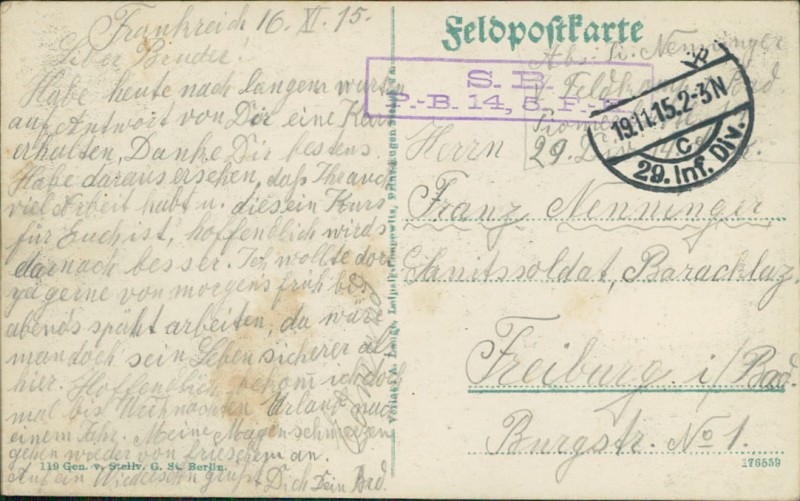 Frankreich 16. XI. 15.
Liber Bruder!
Habe heute nach langem warten
auf Antwort von Dir eine Kart
erhalten, Danke Dir bestens.
Habe daraus ersehen, daß Ihr auch
viel Arbeit habt u. dies ein Kurs
für Euch ist, hoffendlich wirds
darnach besser. Ich wollte dort
ja gerne von morgens früh bis
abends späht arbeiten, da wäre
man doch sein Leben sicherer als
hier. Hoffendlich bekom ich doch
mal bis Weihnachten Urlaub nach
einem Jahr. Meine Magenschmerzen
gehen wieder von frieschem an.
Auf ein Wiedersehn grüßt Dich Dein Bad.
119 Gen. v. Stellv. G. St. Berlin.
Feldpostkarte
Abs. Nenninger
Feldkomp. Bad.
Pionier
29. Div.
S. B.
P.-B. 14, 5. F.-
19.11.15.2-3N
c
29. Inf. Div.
Herrn
Franz Nenninger
Sanitssoldat, Baracklaz.
Freiburg i/Bad.
Burgstr. No 1.
176559